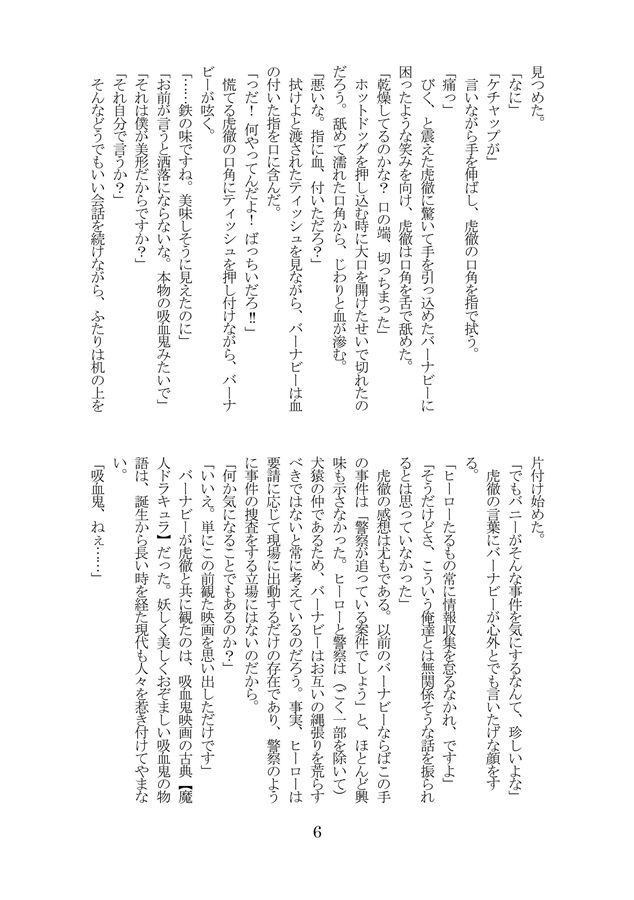 見つめた。
「なに」
「ケチャップが」
　言いながら手を伸ばし、虎徹の口角を指で拭う。
「痛っ」
　びく、と震えた虎徹に驚いて手を引っ込めたバーナビーに
困ったような笑みを向け、虎徹は口角を舌で舐めた。
「乾燥してるのかな？　口の端、切っちまった」
　ホットドッグを押し込む時に大口を開けたせいで切れたの
だろう。舐めて濡れた口角から、じわりと血が滲む。
「悪いな。指に血、付いただろ？」
　拭けよと渡されたティッシュを見ながら、バーナビーは血
の付いた指を口に含んだ。
「っだ！　何やってんだよ！　ばっちいだろ!!」
　慌てる虎徹の口角にティッシュを押し付けながら、バーナ
ビーが呟く。
「……鉄の味ですね。美味しそうに見えたのに」
「お前が言うと洒落にならないな。本物の吸血鬼みたいで」
「それは僕が美形だからですか？」
「それ自分で言うか？」
　そんなどうでもいい会話を続けながら、ふたりは机の上を
片付け始めた。
「でもバニーがそんな事件を気にするなんて、珍しいよな」
　虎徹の言葉にバーナビーが心外とでも言いたげな顔をす
る。
「ヒーローたるもの常に情報収集を怠るなかれ、ですよ」
「そうだけどさ、こういう俺達とは無関係そうな話を振られ
るとは思っていなかった」
　虎徹の感想は尤もである。以前のバーナビーならばこの手
の事件は「警察が追っている案件でしょう」と、ほとんど興
味も示さなかった。ヒーローと警察は（ごく一部を除いて）
犬猿の仲であるため、バーナビーはお互いの縄張りを荒らす
べきではないと常に考えているのだろう。事実、ヒーローは
要請に応じて現場に出動するだけの存在であり、警察のよう
に事件の捜査をする立場にはないのだから。
「何か気になることでもあるのか？」
「いいえ。単にこの前観た映画を思い出しただけです」
　バーナビーが虎徹と共に観たのは、吸血鬼映画の古典【魔
人ドラキュラ】だった。妖しく美しくおぞましい吸血鬼の物
語は、誕生から長い時を経た現代も人々を惹き付けてやまな
い。
「吸血鬼、ねぇ……」
6